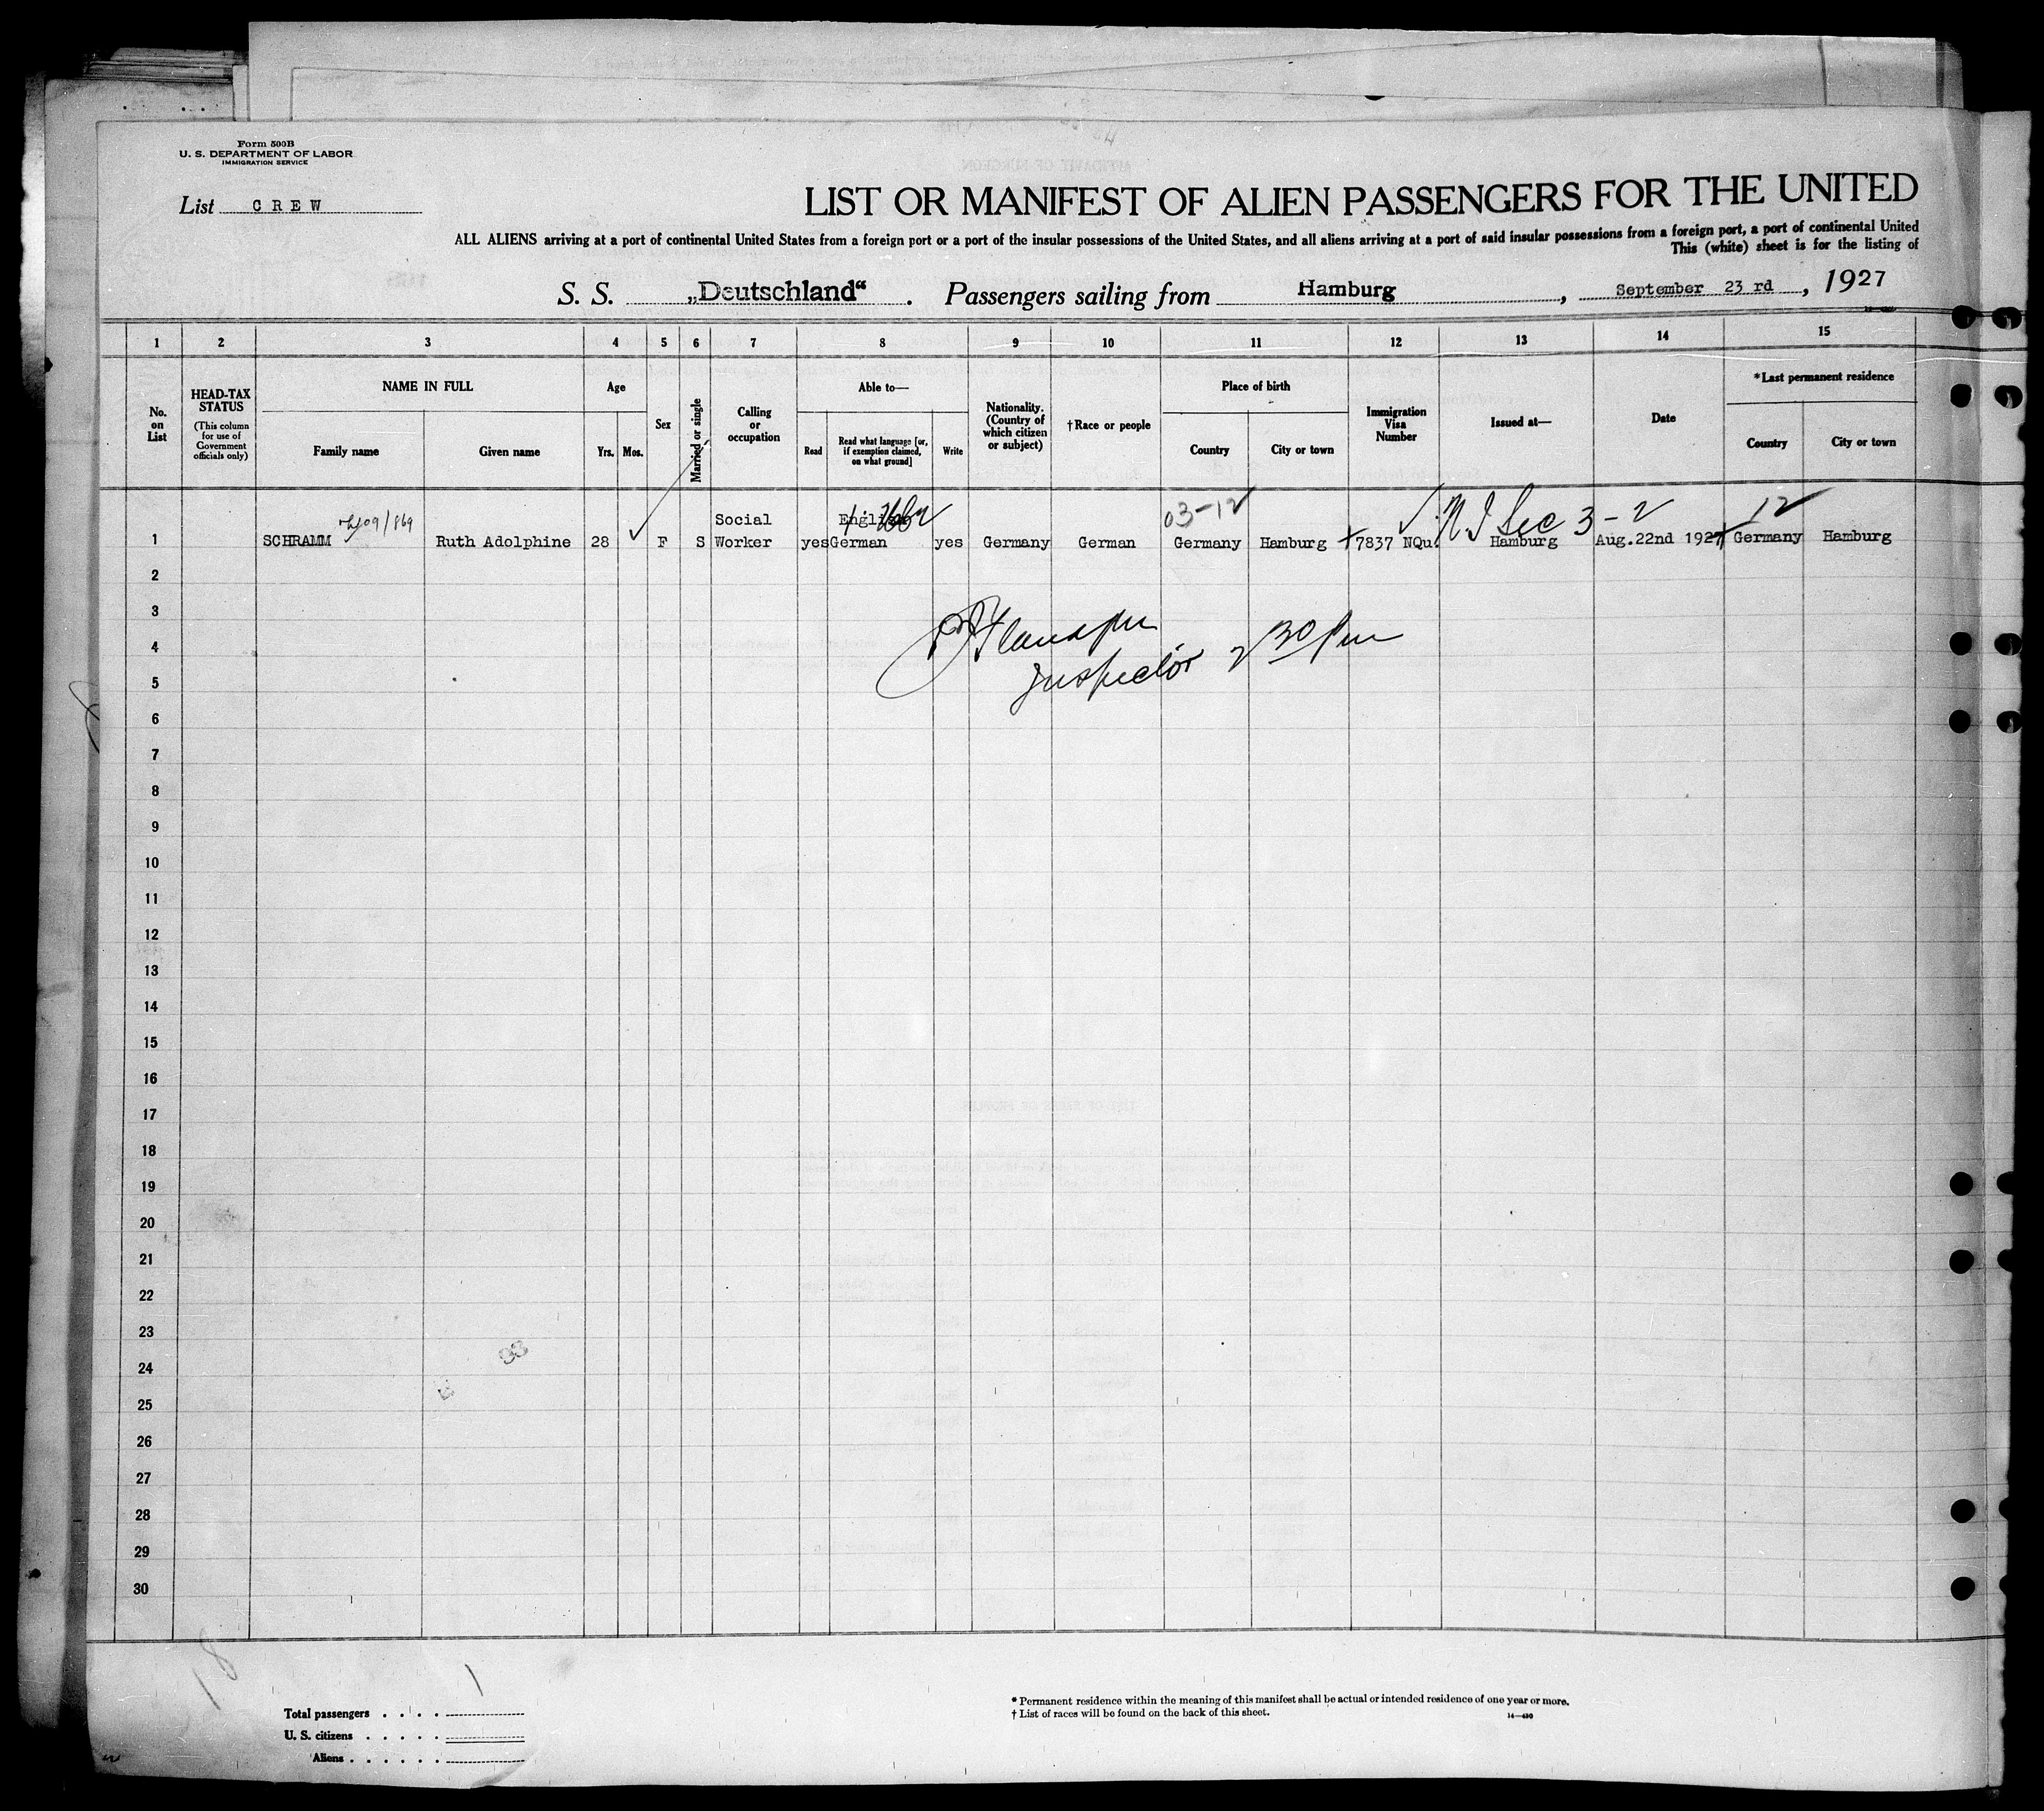 Form 500B
U. S. DEPARTMENT OF LABOR
IMMIGRATION SERVICE
List CREW
LIST OR MANIFEST OF ALIEN PASSENGERS FOR THE UNITED
ALL ALIENS arriving at a port of continental United States from a foreign port or a port of the insular possessions of the United States, and all aliens arriving at a port of said insular possessions from a foreign port, a port of continental United
This (white) sheet is for the listing of
S. S. „Deutschland“. Passengers sailing from Hamburg, September 23 rd, 1927
1 2 3 4 5 6 7 8 9 10 11 12 13 14 15
No. on List
HEAD-TAX STATUS
(This column for use of Government officials only)
NAME IN FULL
Family name
Given name
Age
Yrs.
Mos.
Sex
Married or single
Calling or occupation
Able to—
Read
Read what language [or, if exemption claimed, on what ground]
Write
Nationality. (Country of which citizen or subject)
†Race or people
Place of birth
Country
City or town
Immigration Visa Number
Issued at—
Date
*Last permanent residence
Country
City or town
09/869
Social
English
03-12
3-2
12
1 SCHRAMM Ruth Adolphine 28 F S Worker yes German yes Germany German Germany Hamburg 7837 NQu. Hamburg Aug.22nd 1927 Germany Hamburg
2
3
4
5
Inspector 2 30 Pm
6
7
8
9
10
11
12
13
14
15
16
17
18
19
20
21
22
23
24
25
26
27
28
29
30
18
1
Total passengers
U. S. citizens
Aliens
* Permanent residence within the meaning of this manifest shall be actual or intended residence of one year or more.
† List of races will be found on the back of this sheet.
14—430